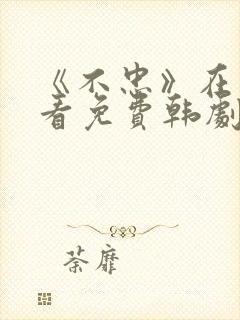 《不忠》在
看免費韩劇
荼靡